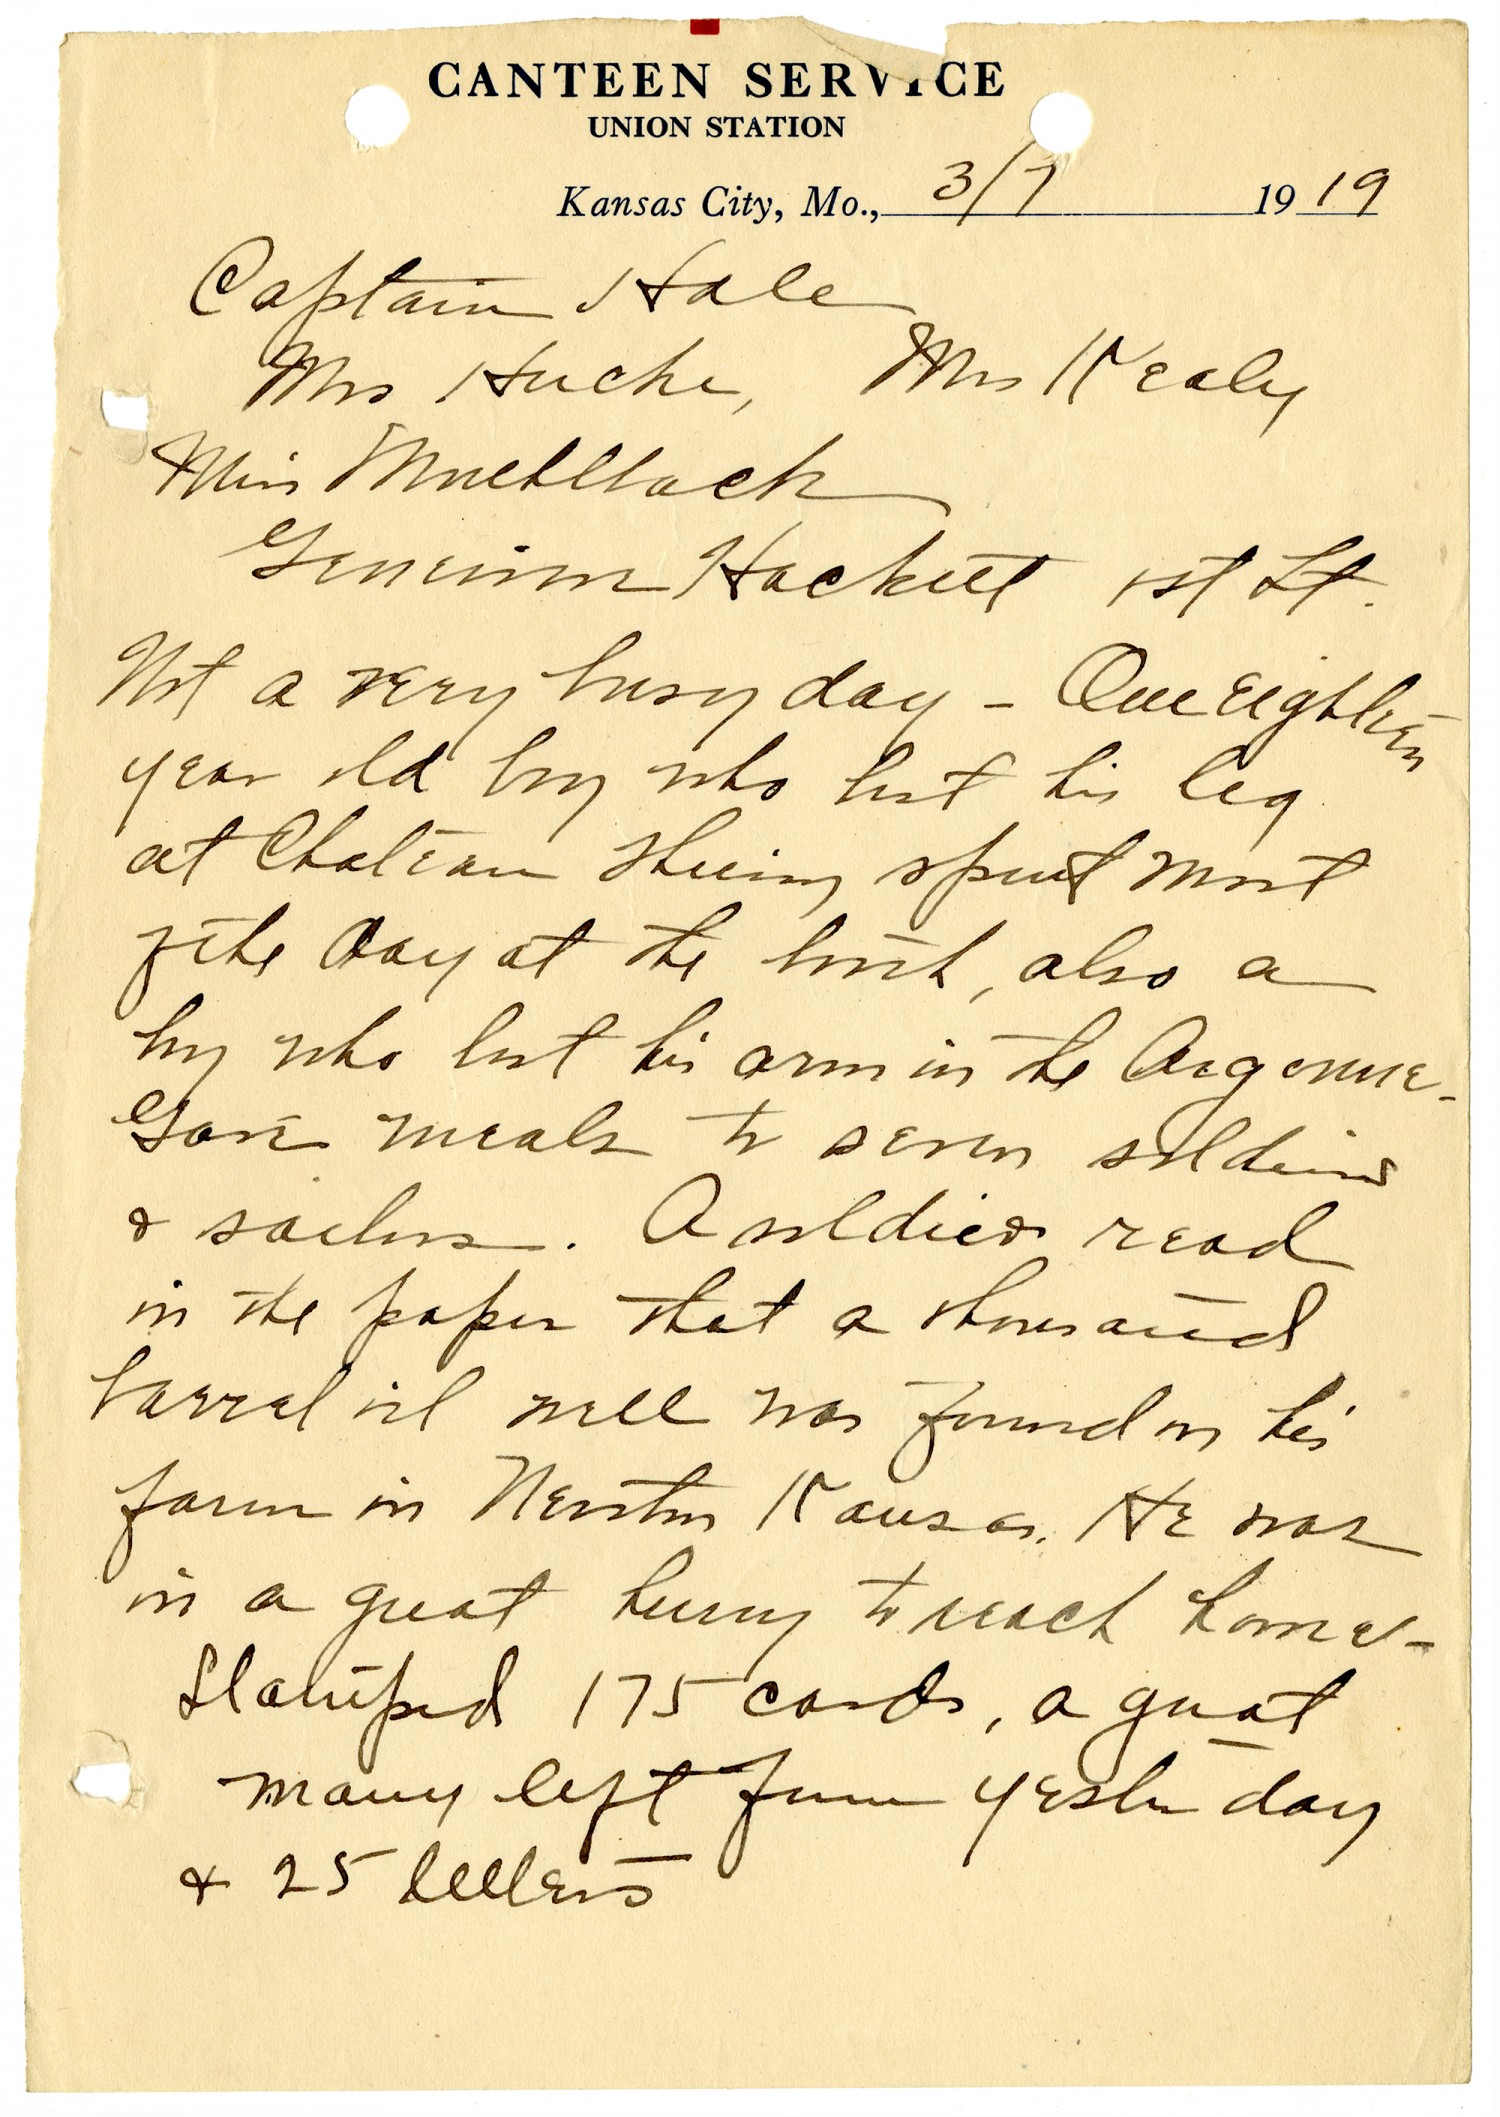 CANTEEN SERVICE
UNION STATION
Kansas City, Mo., 3/7 1919
Captain Hale
Mrs Hucke, Mrs Kealy
Miss
Genevieve Hackett 1st Lt.
Not a very busy day - One eighteen
year old boy who lost his leg
at Chateau Thierry spent most
of the day at the booth, also a
boy who lost his arm in the Argonne -
Gave meals to seven soldiers
& sailors. A soldier read
in the paper that a thousand
barrel oil well was found on his
farm in Newton Kansas. He was
in a great hurry to reach home -
Stamped 175 cards, a great
many left from yesterday
& 25 letters